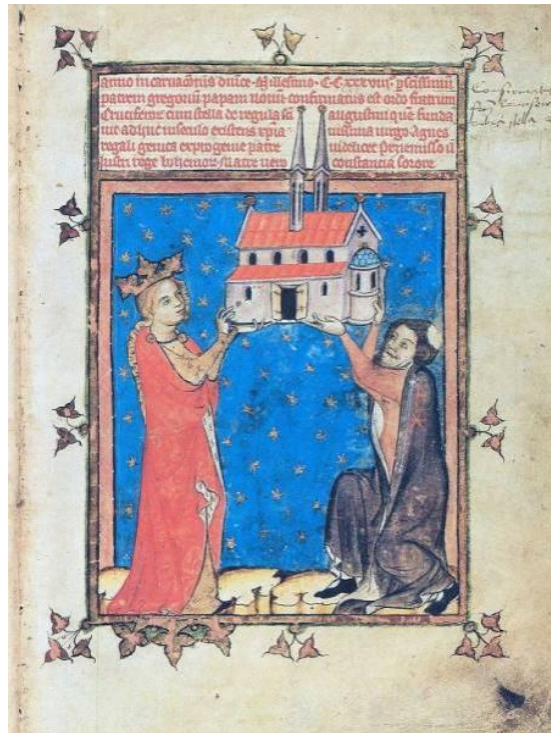 anno incarnacōnis dnīce · Millesimo · C·C·xxxviii · p scissimū
patrem gregoriū papam nonū confirmatus est ordo fratrum
Cruciferoꝝ cum stella de regula sci augustini quē funda
uit adhuc in seculo existens xpia nissima uirgo Agnes
regali genita ex progenie patre uidelicet Peremisso il
lustri rege bohemoꝝ Matre uero constancia sorore